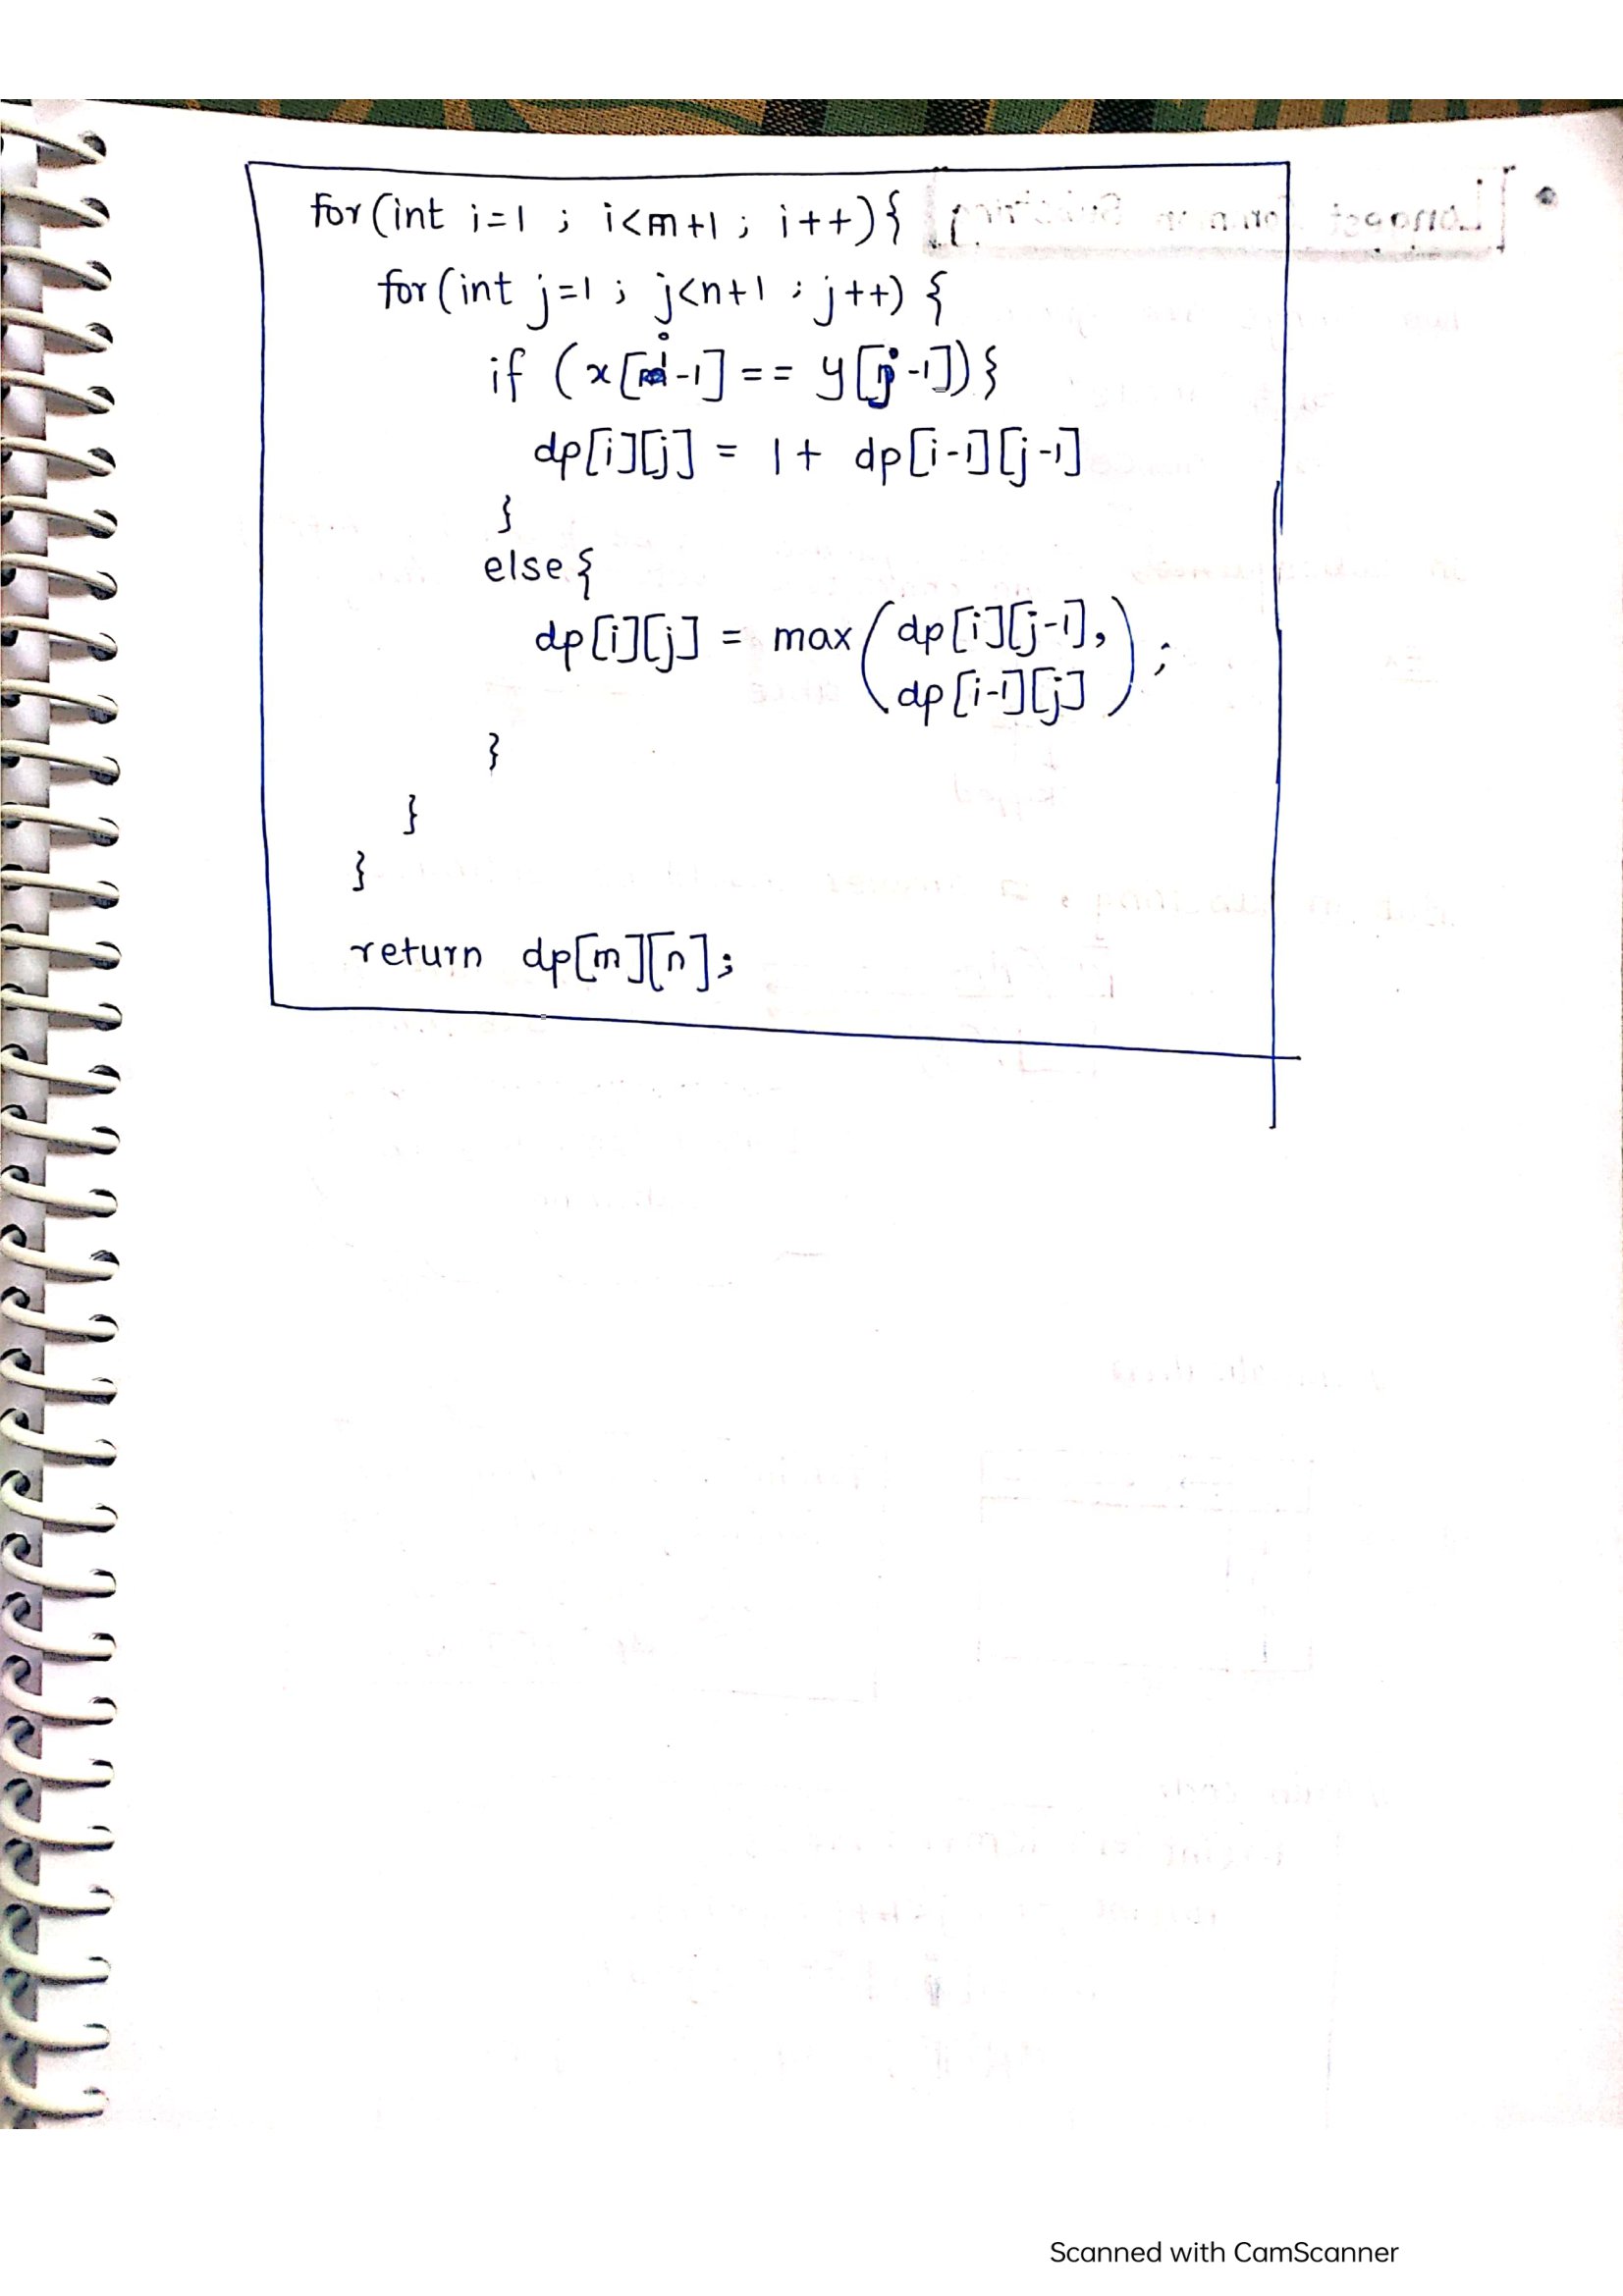 for(int i=1 ; i<m+1 ; i++){
for(int j=1 ; j<n+1 ; j++) {
if (x[i-1] == y[j-1]){
dp[i][j] = 1+ dp[i-1][j-1]
}
else{
dp[i][j] = max(dp[i][j-1],
dp[i-1][j]);
}
}
}
return dp[m][n];
Scanned with CamScanner